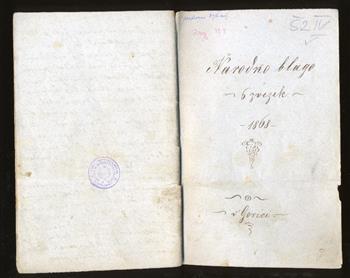 ŠZ IV
Narodno blago
6 zvezek
-1868-
v Gorici